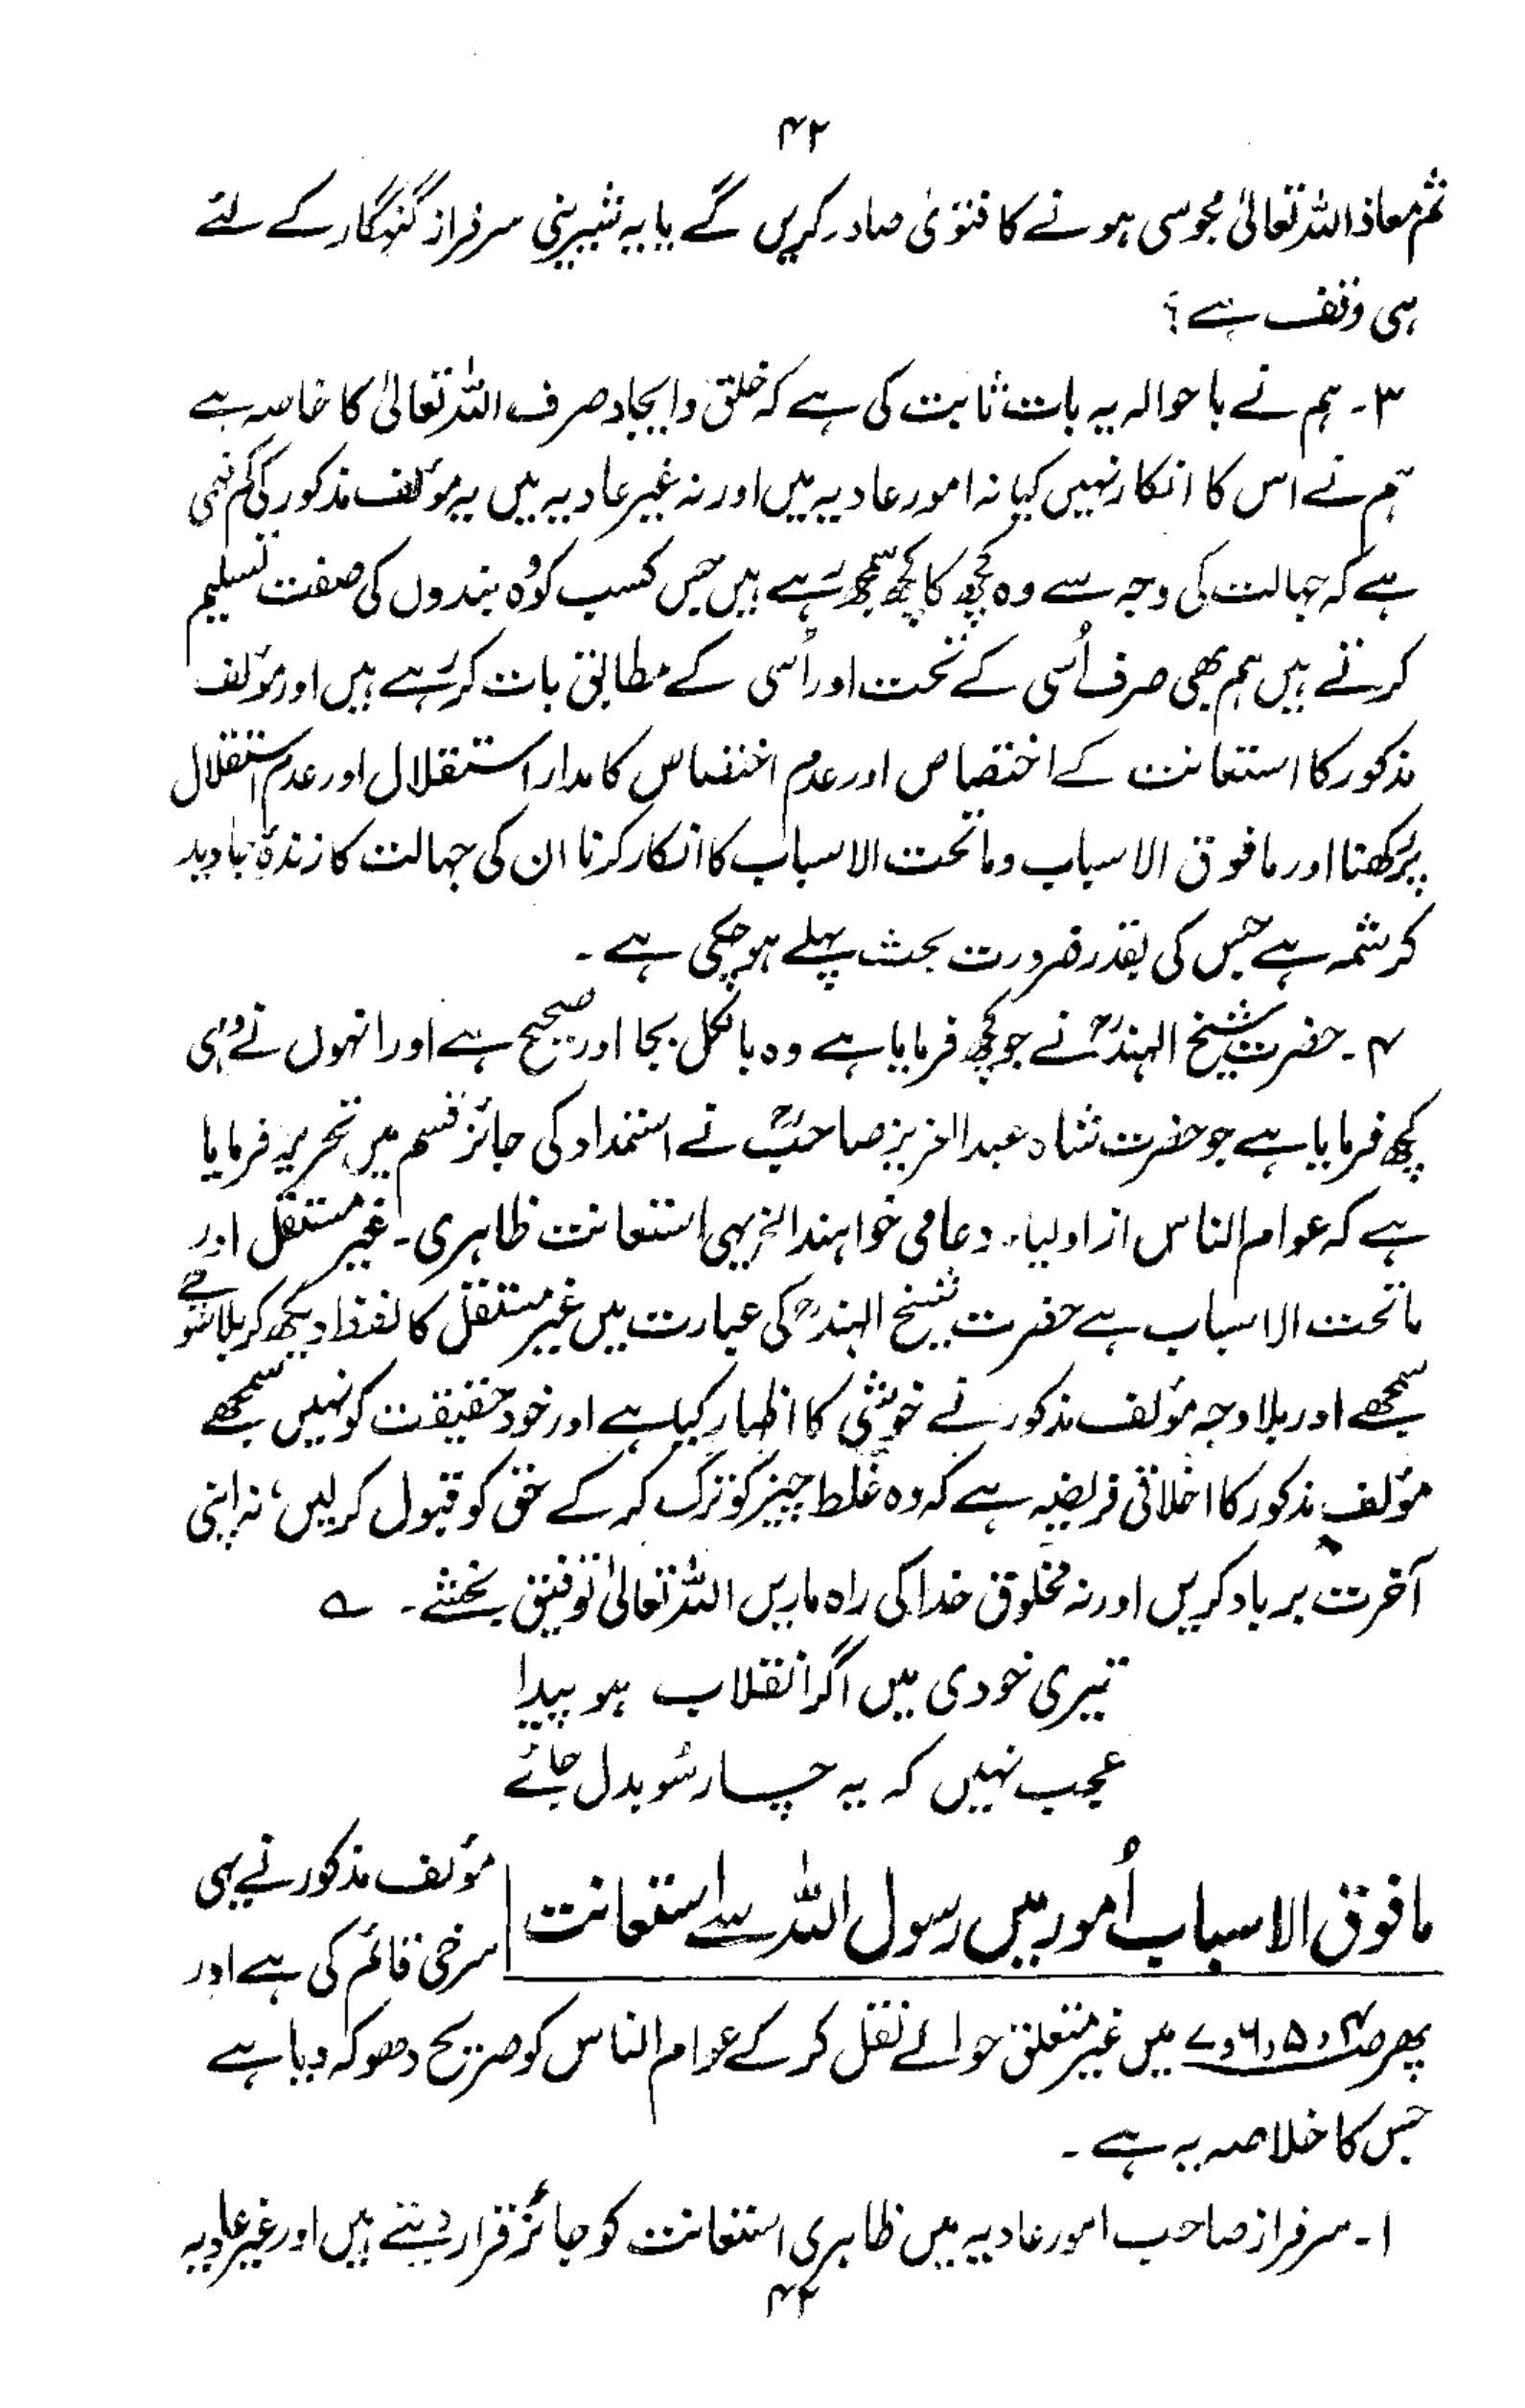 ۴۲
ثم معاذ اللہ تعالیٰ مجوسی ہونے کا فتویٰ صادر کریں گے یا یہ شیرینی سرفراز گنہگار کے لئے
ہی وقف ہے؟
۳۔ ہم نے باحوالہ یہ بات ثابت کی ہے کہ خلق و ایجاد صرف اللہ تعالیٰ کا خاصہ ہے
ہم نے اس کا انکار نہیں کیا نہ امور عادیہ میں اور نہ غیر عادیہ میں یہ مؤلف مذکور کی کم فہمی
ہے کہ جہالت کی وجہ سے وہ کچھ کا کچھ سمجھ رہے ہیں جس کسب کو وُہ بندوں کی صفت تسلیم
کرتے ہیں ہم بھی صرف اُسی کے تحت اور اُسی کے مطابق بات کر رہے ہیں اور مؤلف
مذکور کا استعانت کے اختصاص اور عدم اختصاص کا مدار استقلال اور عدم استقلال
پر رکھنا اور مافوق الاسباب و ماتحت الاسباب کا انکار کرنا ان کی جہالت کا زندۂ جاوید
کرشمہ ہے جس کی بقدر ضرورت بحث پہلے ہو چکی ہے۔
۴۔ حضرت شیخ الہندؒ نے جو کچھ فرمایا ہے وہ بالکل بجا اور صحیح ہے اور انہوں نے وہی
کچھ فرمایا ہے جو حضرت شاہ عبد العزیز صاحبؒ نے استمداد کی جائز قسم میں تحریر فرمایا
ہے کہ عوام الناس از اولیاء دعا می خواہند الخ یہی استعانت ظاہری۔ غیر مستقل اور
ماتحت الاسباب ہے حضرت شیخ الہندؒ کی عبارت میں غیر مستقل کا لفظ دیکھ کر بلا سوچے
سمجھے اور بلاوجہ مؤلف مذکور نے خوشی کا اظہار کیا ہے اور خود حقیقت کو نہیں سمجھے
مؤلف مذکور کا اخلاقی فریضہ ہے کہ وہ غلط چیز کو ترک کر کے حق کو قبول کر لیں، نہ اپنی
آخرت برباد کریں اور نہ مخلوق خدا کی راہ ماریں اللہ تعالیٰ توفیق بخشے۔ ؎
تیری خودی میں اگر انقلاب ہو پیدا
عجب نہیں کہ یہ چار سُو بدل جائے
مافوق الاسباب اُمور میں رسول اللہ سے استعانت
مؤلف مذکور نے یہی
سرخی قائم کی ہے اور
پھر صـ۴ و ۵ و ۶ و ۷ میں غیر متعلق حوالے نقل کر کے عوام الناس کو صریح دھوکہ دیا ہے
جس کا خلاصہ یہ ہے۔
۱۔ سرفراز صاحب امور عادیہ میں ظاہری استعانت کو جائز قرار دیتے ہیں اور غیر عادیہ
۴۲